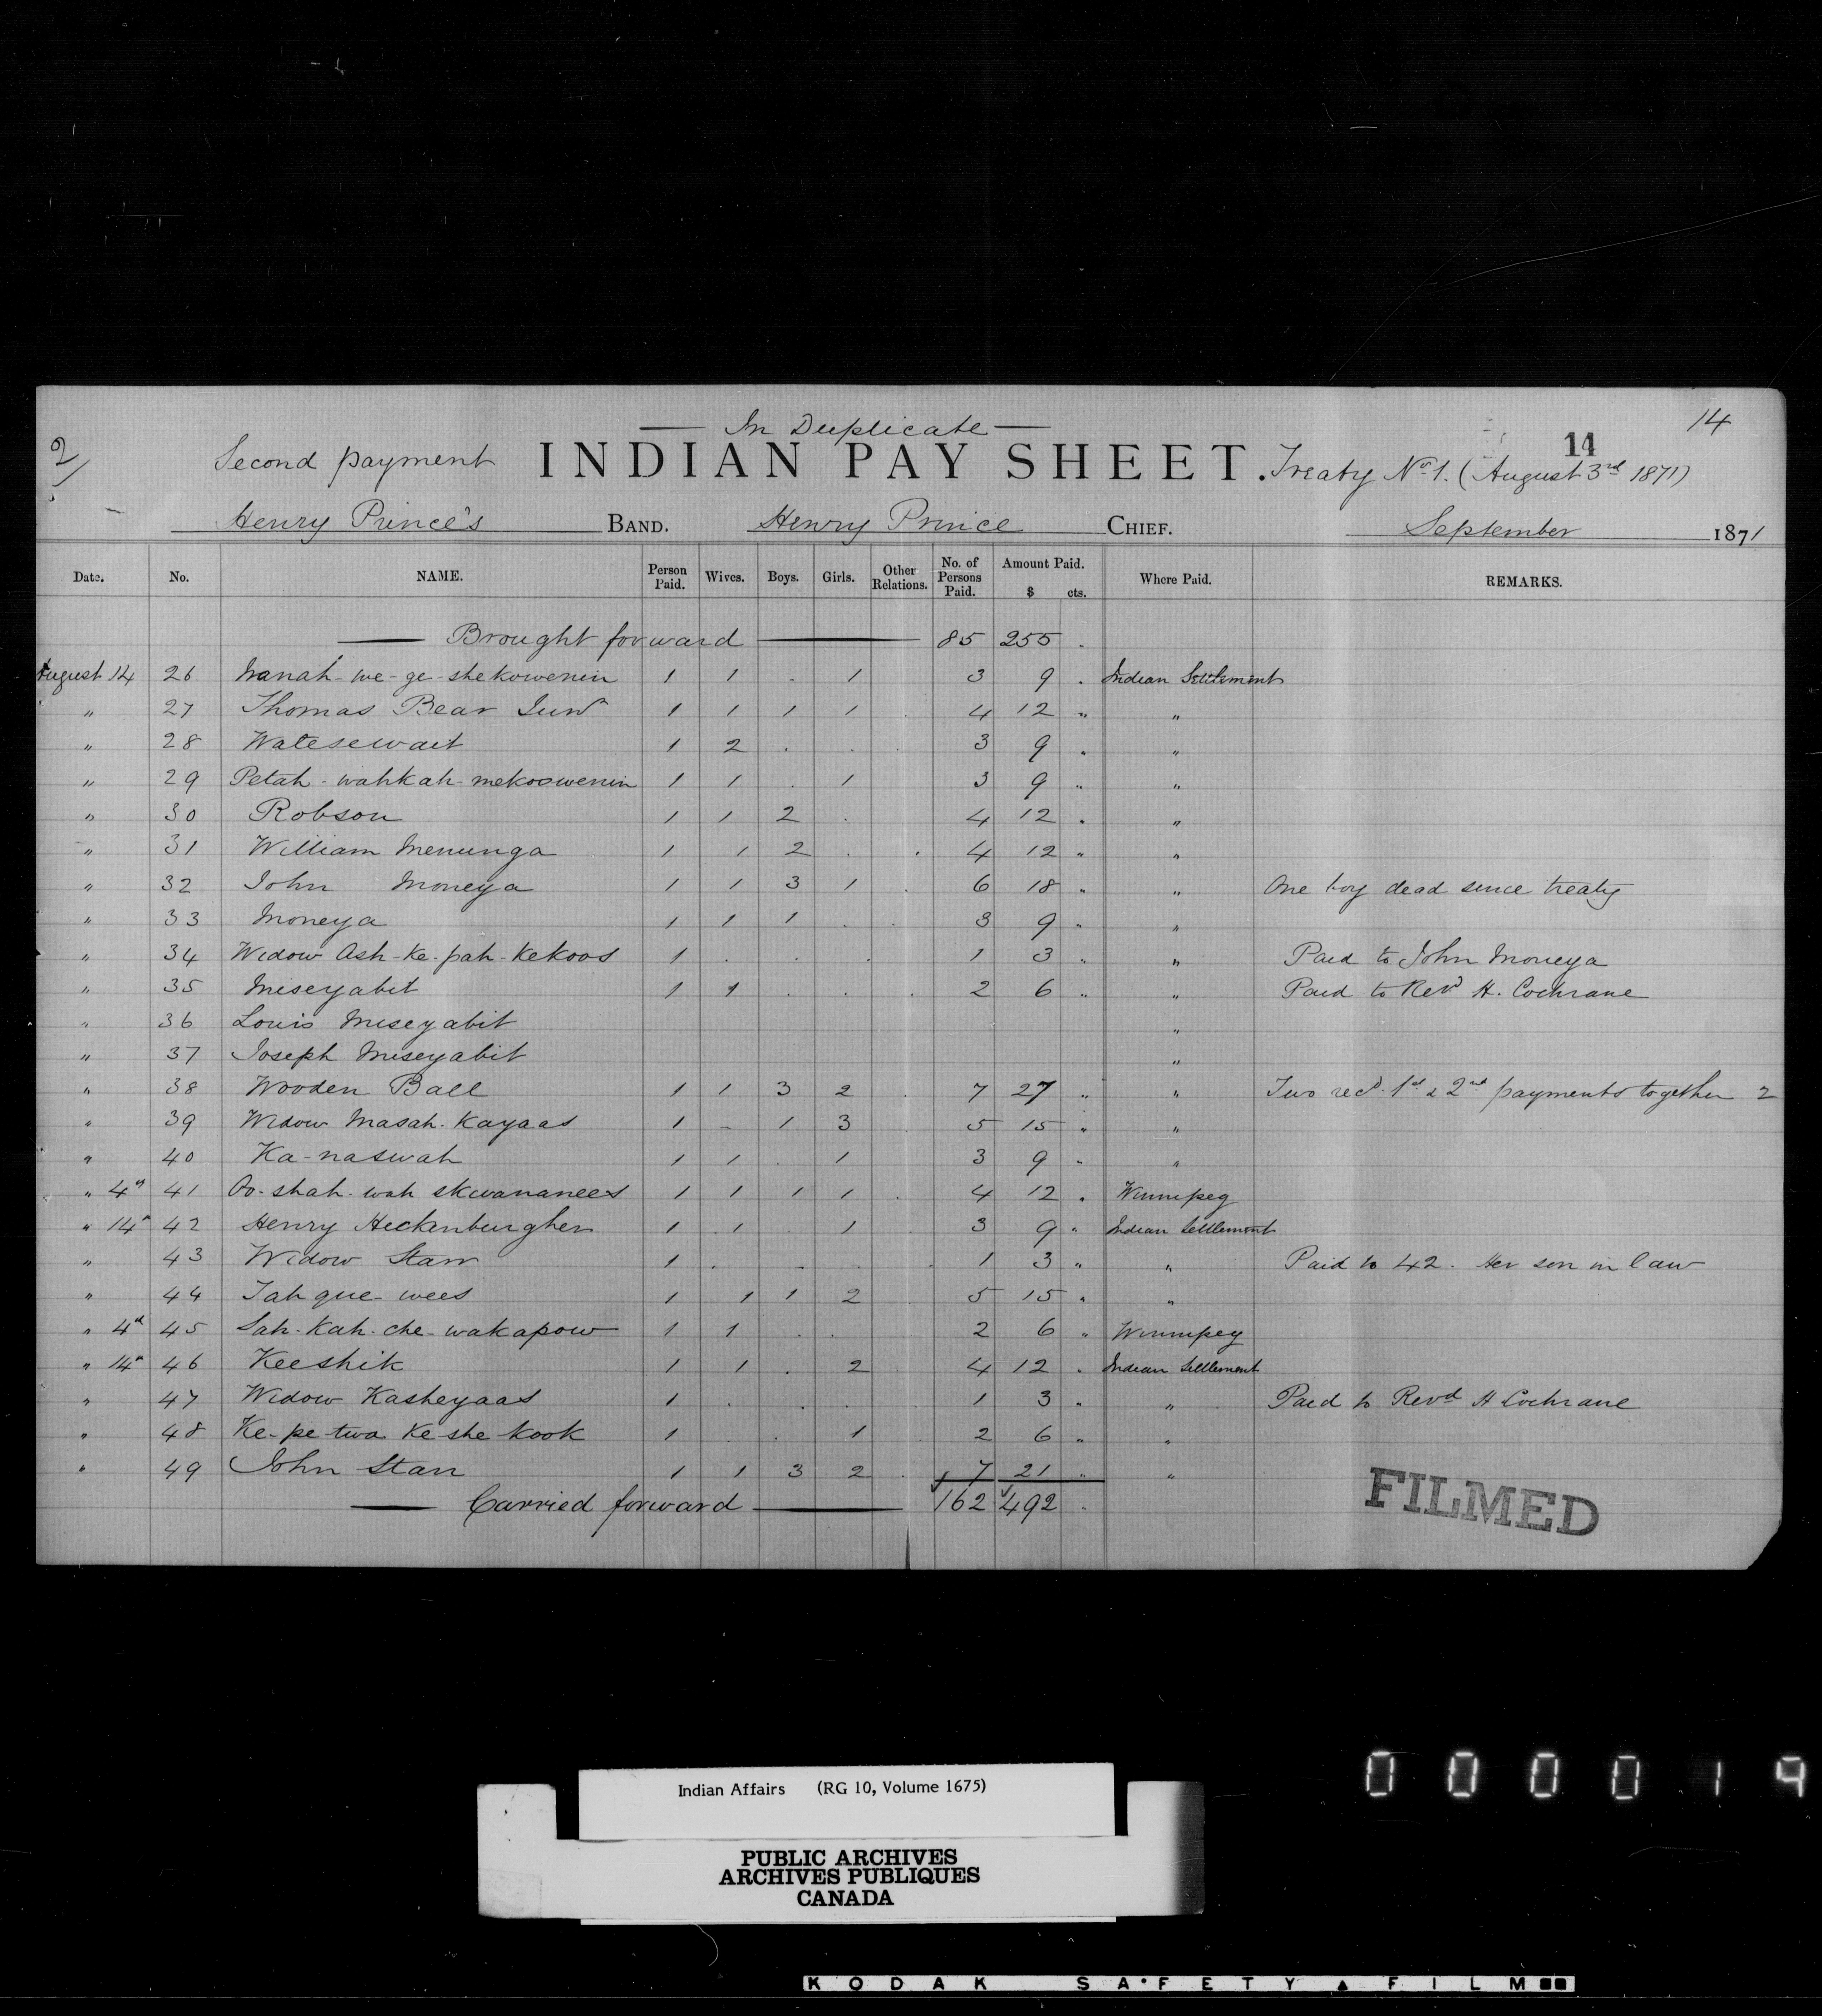 14
— In Duplicate —
14
2/
Second payment INDIAN PAY SHEET. Treaty No. 1. (August 3rd 1871)
Henry Prince's BAND. Henry Prince CHIEF. September 1871
Date. No. NAME. Person Paid. Wives. Boys. Girls. Other Relations. No. of Persons Paid. Amount Paid. $ cts. Where Paid. REMARKS.
— Brought forward — 85 255 .
August 14 26 Nanah-we-ge-shekowenin 1 1 . 1 3 9 . Indian Settlement
" 27 Thomas Bear Junr 1 1 1 1 . 4 12 " "
" 28 Watesewait 1 2 . . . 3 9 . "
" 29 Petah-wahkah-mekoowenin 1 1 . 1 3 9 " "
" 30 Robson 1 1 2 . 4 12 . "
" 31 William Menunga 1 1 2 . . 4 12 " "
" 32 John Moneya 1 1 3 1 . 6 18 " " One boy dead since treaty
" 33 Moneya 1 1 1 . . 3 9 " "
" 34 Widow Ash-ke-pah-kekoos 1 . . . 1 3 " " Paid to John Moneya
" 35 Meseyabit 1 1 . . . 2 6 " " Paid to Revd H. Cochrane
" 36 Louis Meseyabit "
" 37 Joseph Meseyabit "
" 38 Wooden Ball 1 1 3 2 . 7 27 " " Two recd. 1st & 2nd payments together 2
" 39 Widow Masah-Kayaas 1 - 1 3 5 15 " "
" 40 Ka-naswah 1 1 . 1 3 9 " "
" 4th 41 Oo-shah-wah skwananees 1 1 1 1 . 4 12 . Winnipeg
" 14th 42 Henry Heckenburgher 1 1 . 1 3 9 " Indian Settlement
" 43 Widow Starr 1 . . . . 1 3 " " Paid to 42. Her son in law
" 44 Tahque-wees 1 1 1 2 5 15 " "
" 4th 45 Sah-kah-che-wakapow 1 1 . . 2 6 " Winnipeg
" 14th 46 Keeshik 1 1 . 2 4 12 . Indian Settlement
" 47 Widow Kasheyaas 1 . . . 1 3 " " Paid to Revd H Cochrane
" 48 Ke-pe-twa ke she kook 1 . . 1 2 6 " "
" 49 John Starr 1 1 3 2 . 7 21 " "
— Carried forward — 162 492 .
FILMED
Indian Affairs (RG 10, Volume 1675)
PUBLIC ARCHIVES
ARCHIVES PUBLIQUES
CANADA
000019
KODAK SAFETY FILM